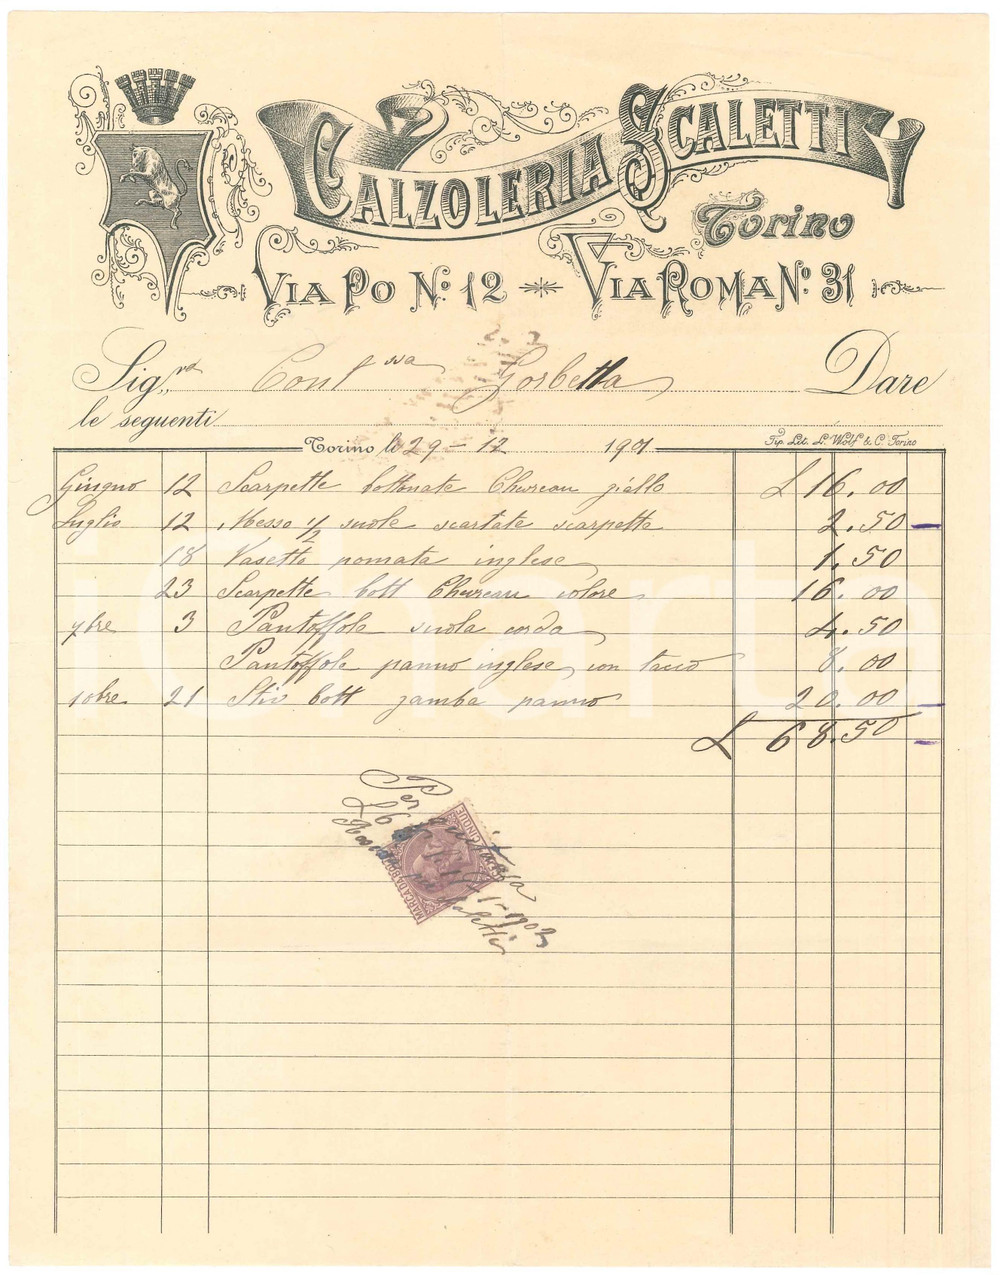 CALZOLERIA SCALETTI
Torino
VIA PO No. 12 * VIA ROMA No. 31
Sig.ra Contssa Gorbetta Dare
le seguenti
Torino lì 29 - 12 1901
Tip. Lit. L. Wolf & C. Torino
Giugno 12 Scarpette bottonate Chevreau giallo £ 16.00
Luglio 12 Messo 1/2 suole scartate scarpette 2.50
18 Vasetto pomata inglese 1.50
23 Scarpette bott Chevreau colore 16.00
9bre 3 Pantoffole suola corda 4.50
Pantoffole panno inglese con tacco 8.00
10bre 21 Stiv bott zamba panno 20.00
£ 68.50
Per quitanza
1-1902
Scaletti
MARCA DA BOLLO
CINQUE
iCharta